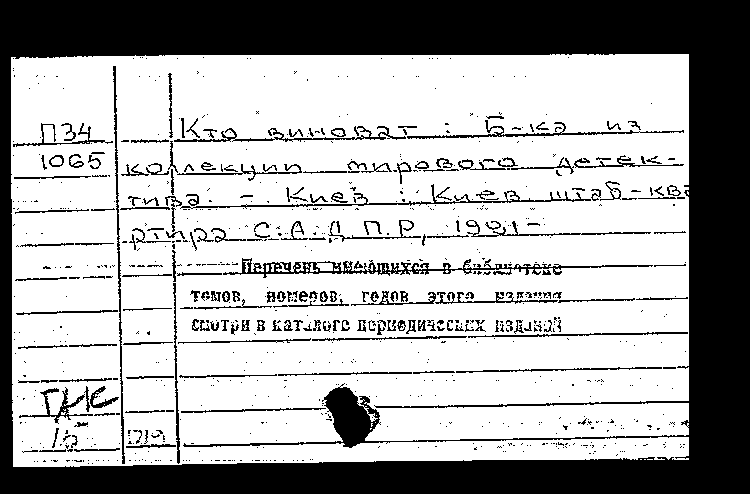 П34 Кто виноват : Б-ка из
1065 коллекции мирового детек-
тива. - Киев : Киев. штаб-ква
ртира С.А.Д.П.Р, 1991-
Перечень имеющихся в библиотеке
томов, номеров, годов этого издания
смотри в каталоге периодических изданий
15 1719